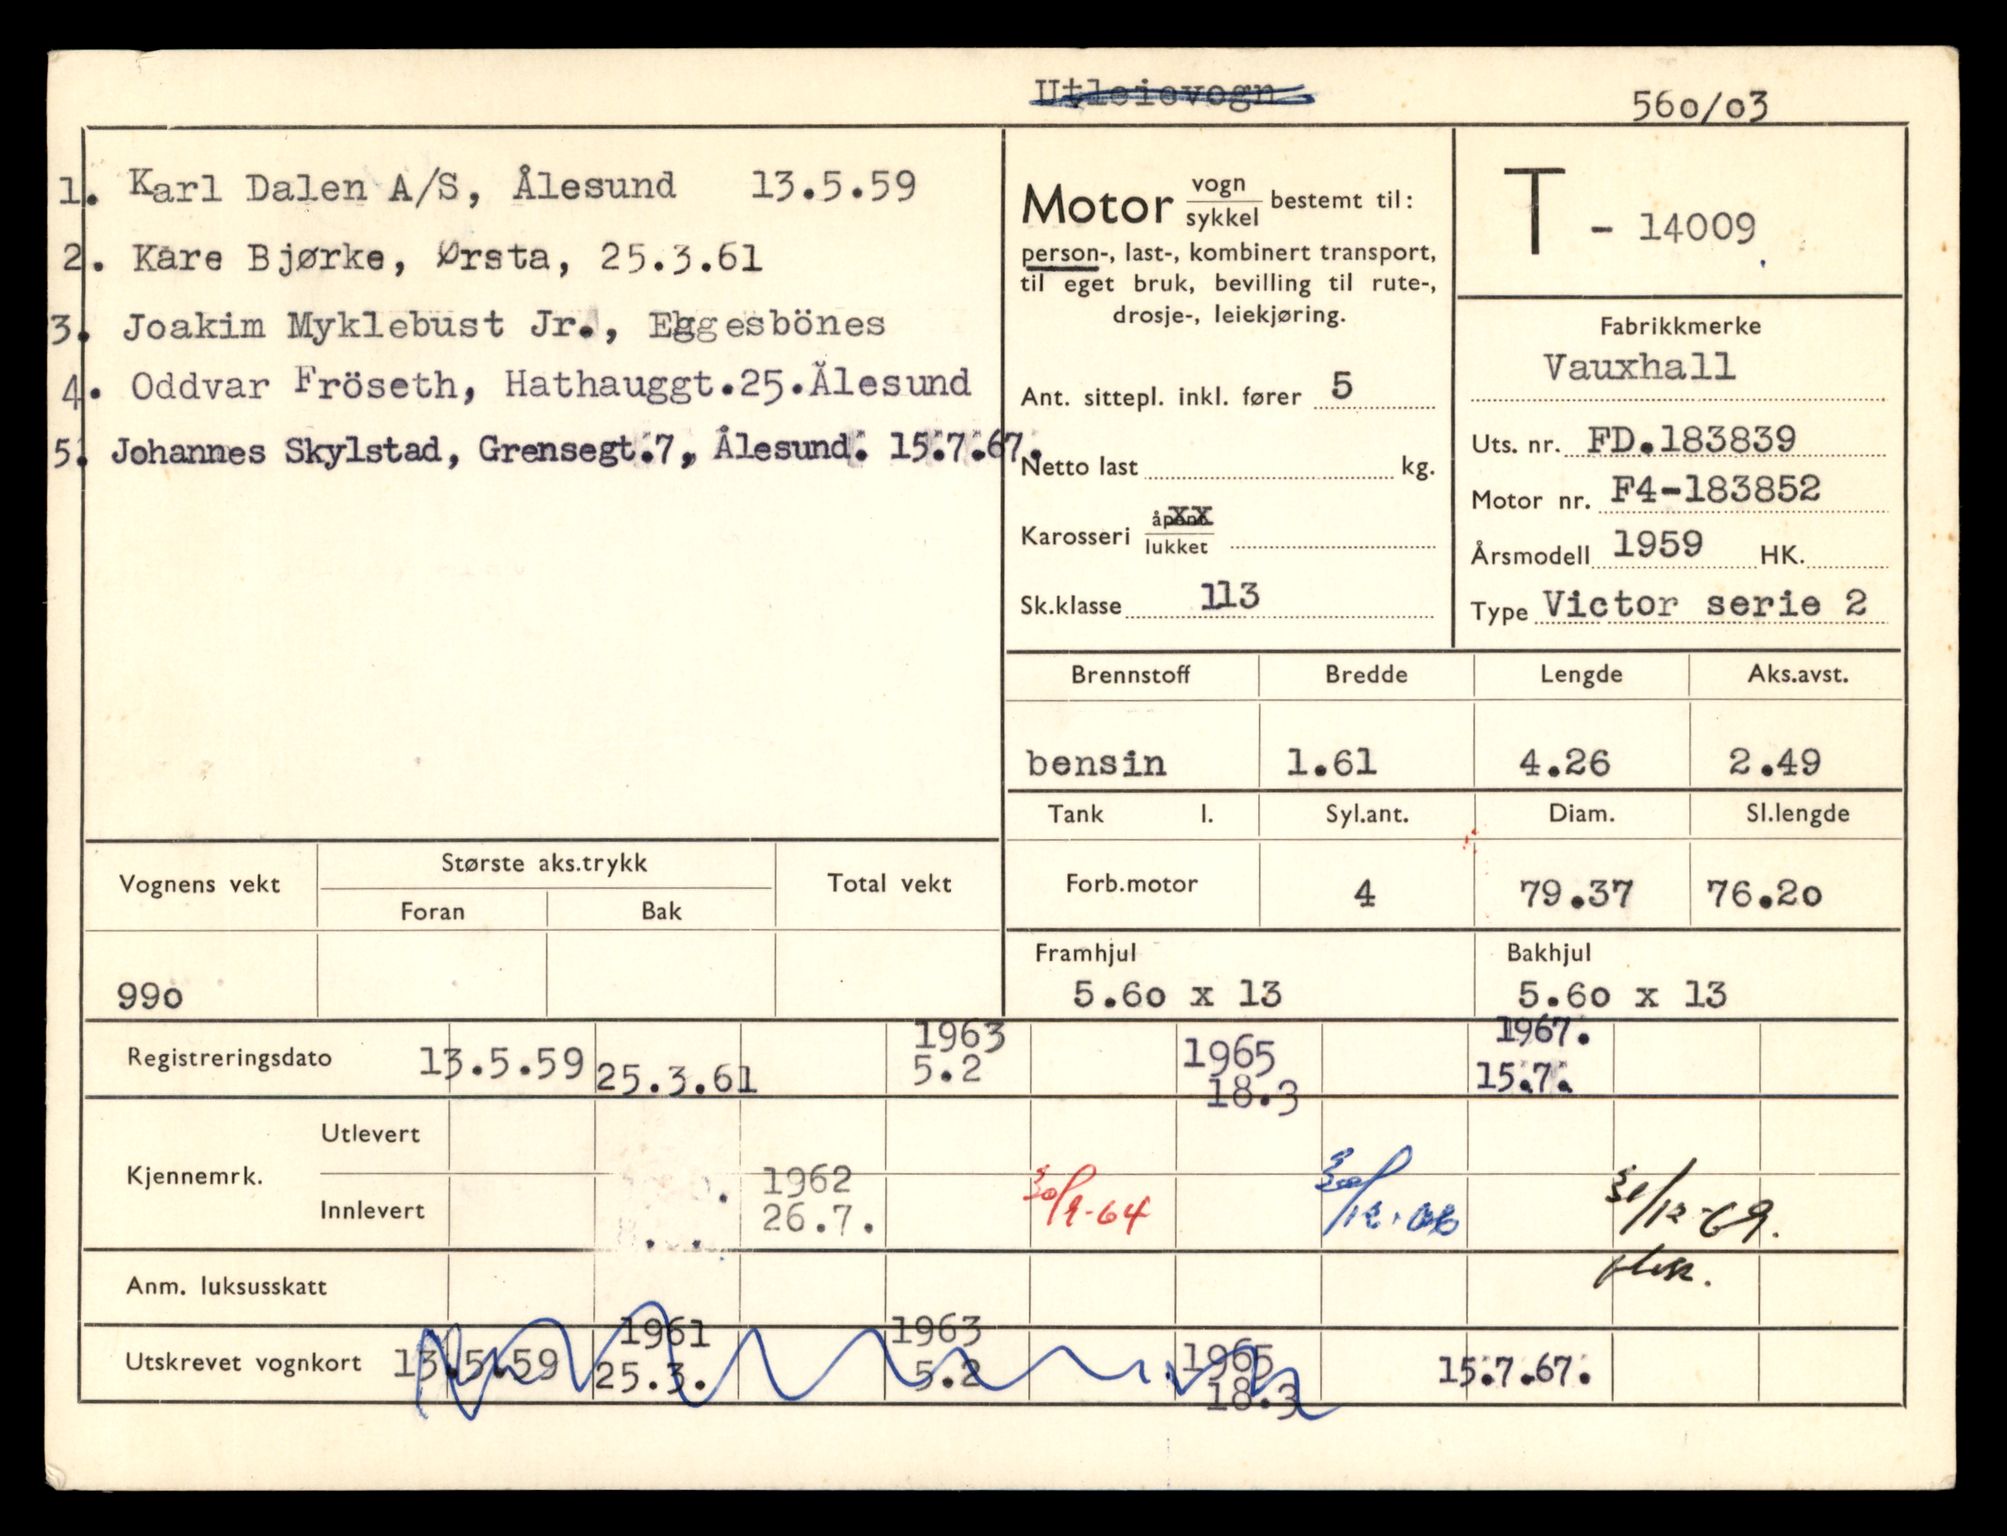 Utleievogn
560/03
1. Karl Dalen A/S, Ålesund 13.5.59
2. Kåre Bjørke, Ørsta, 25.3.61
3. Joakim Myklebust Jr., Eggesbönes
4. Oddvar Fröseth, Hathauggt.25.Ålesund
5. Johannes Skylstad, Grensegt.7, Ålesund. 15.7.67.
Motor vogn/sykkel bestemt til:
person-, last-, kombinert transport,
til eget bruk, bevilling til rute-,
drosje-, leiekjøring.
Ant. sittepl. inkl. fører 5
Netto last kg.
Karosseri åpent/lukket
Sk.klasse 113
T - 14009
Fabrikkmerke
Vauxhall
Uts. nr. FD.183839
Motor nr. F4-183852
Årsmodell 1959 HK.
Type Victor serie 2
Brennstoff Bredde Lengde Aks.avst.
bensin 1.61 4.26 2.49
Tank l. Syl.ant. Diam. Sl.lengde
Forb.motor 4 79.37 76.20
Framhjul Bakhjul
5.60 x 13 5.60 x 13
Vognens vekt Største aks.trykk Total vekt
Foran Bak
990
Registreringsdato 13.5.59 25.3.61 1963 5.2 1965 18.3 1967. 15.7.
Kjennemrk.
Utlevert
Innlevert 1962 26.7. 30/9-64 30/12-66 31/12-69.
Anm. luksusskatt
Utskrevet vognkort 13.5.59 1961 25.3. 1963 5.2 1965 18.3 15.7.67.